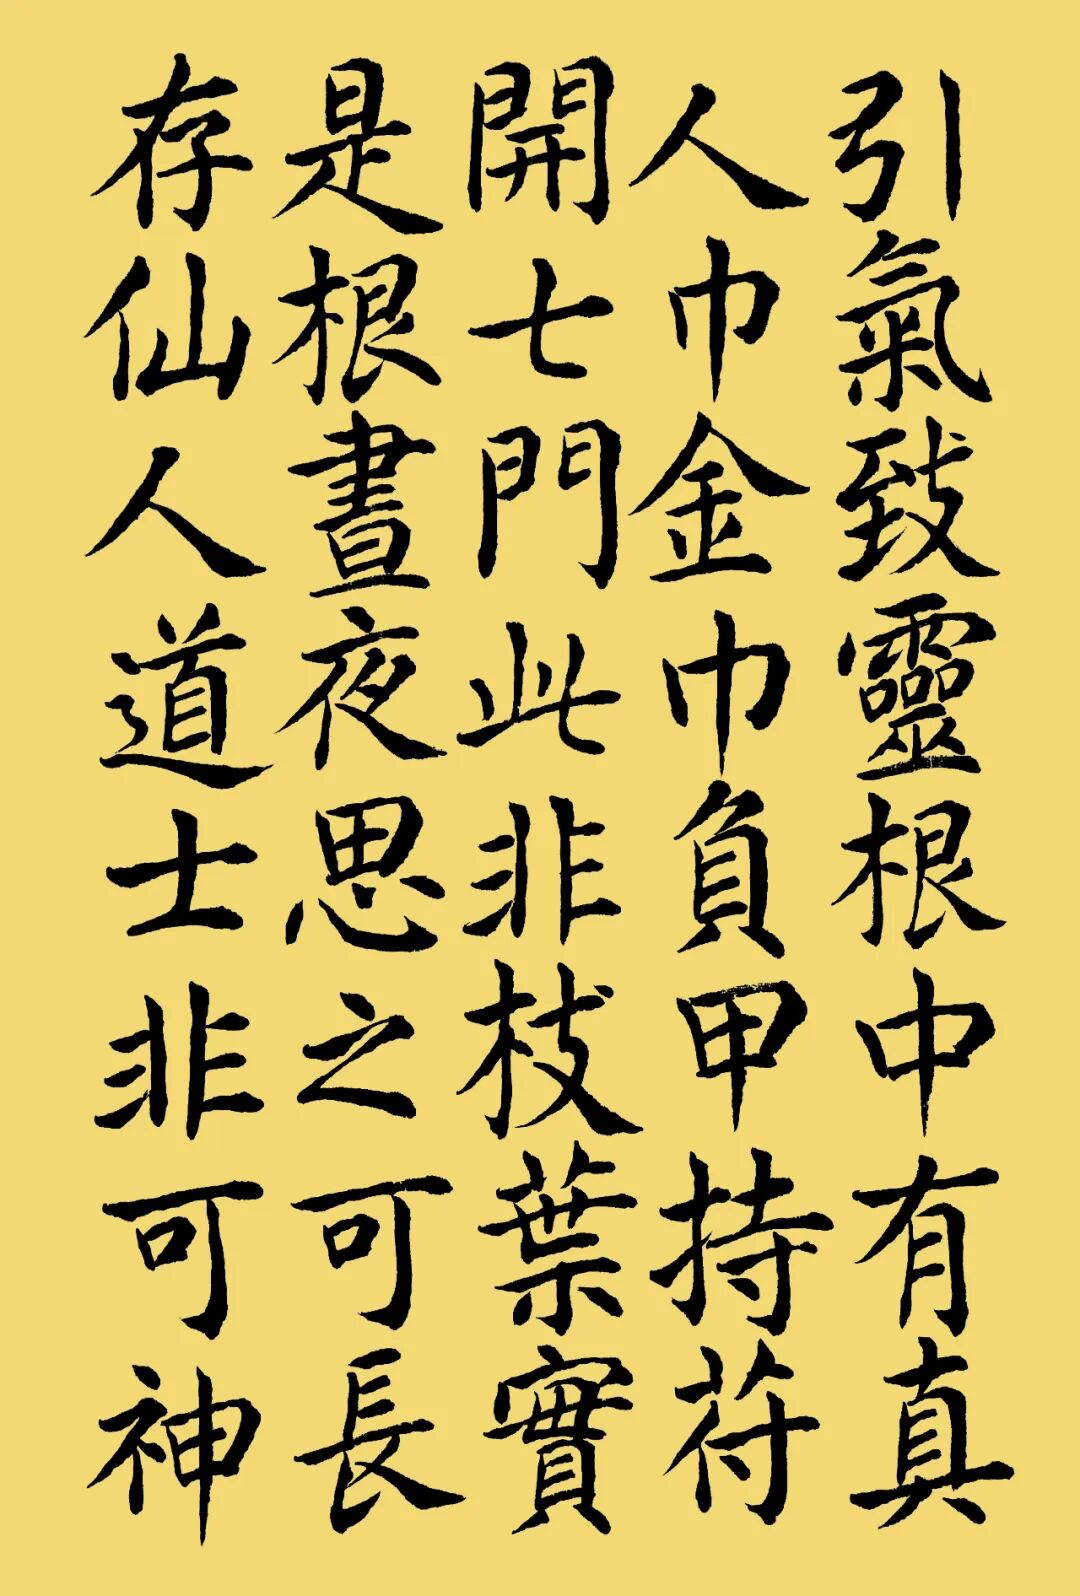 引氣致靈根中有真
人巾金巾負甲持苻
開七門此非枝葉實
是根晝夜思之可長
存仙人道士非可神